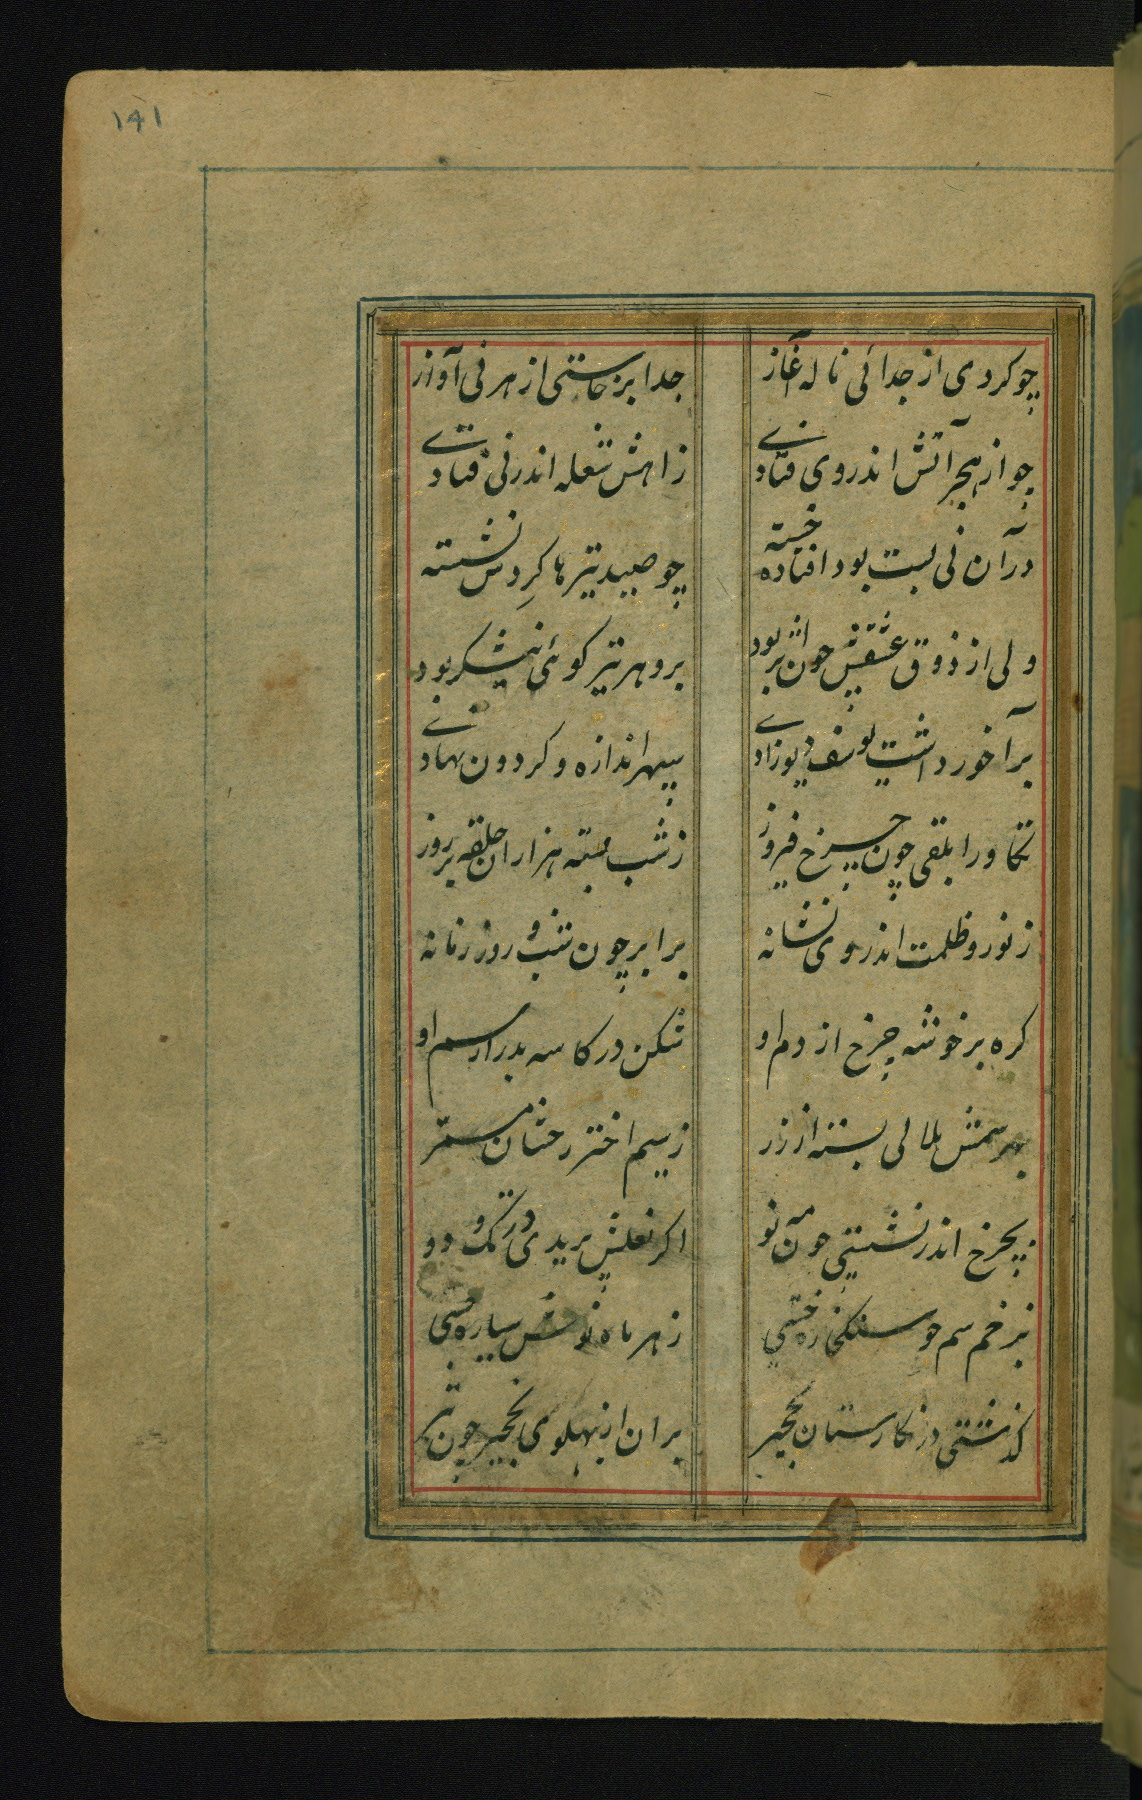 ۱۴۱
چو کردی از جدائی ناله آغاز جدا برخاستی از هر نی آواز
چو از هجر آتش اندر وی فتادی ز آهش شعله اندر نی فتادی
در آن نی بست بود افتاده خسته چو صید تیرها گردش نشسته
ولی از ذوق عشقش چون اثر بود برو هر تیر گوئی نیشکر بود
بر آخور داشت یوسف دیوزادی سپهر اندازه و گردون نهادی
تکاور ابلقی چون چرخ فیروز ز شب بسته هزاران حلقه بر روز
ز نور و ظلمت اندر وی نشانه برابر چون شب و روز زمانه
گره بر خوشه چرخ از دم او شکن در کاسه بدر از سم او
بهر سمش هلالی بسته از زر ز سیم اختر رخشان مسمر
بچرخ اندر نشستی چون مه نو اگر نعلش پریدی در تک و دو
بزخم سم چو سنگی زو خستی ز هر ماه نوش سیاره جستی
گذشتی در شکارستان نخجیر پران از پهلوی نخجیر چون تیر